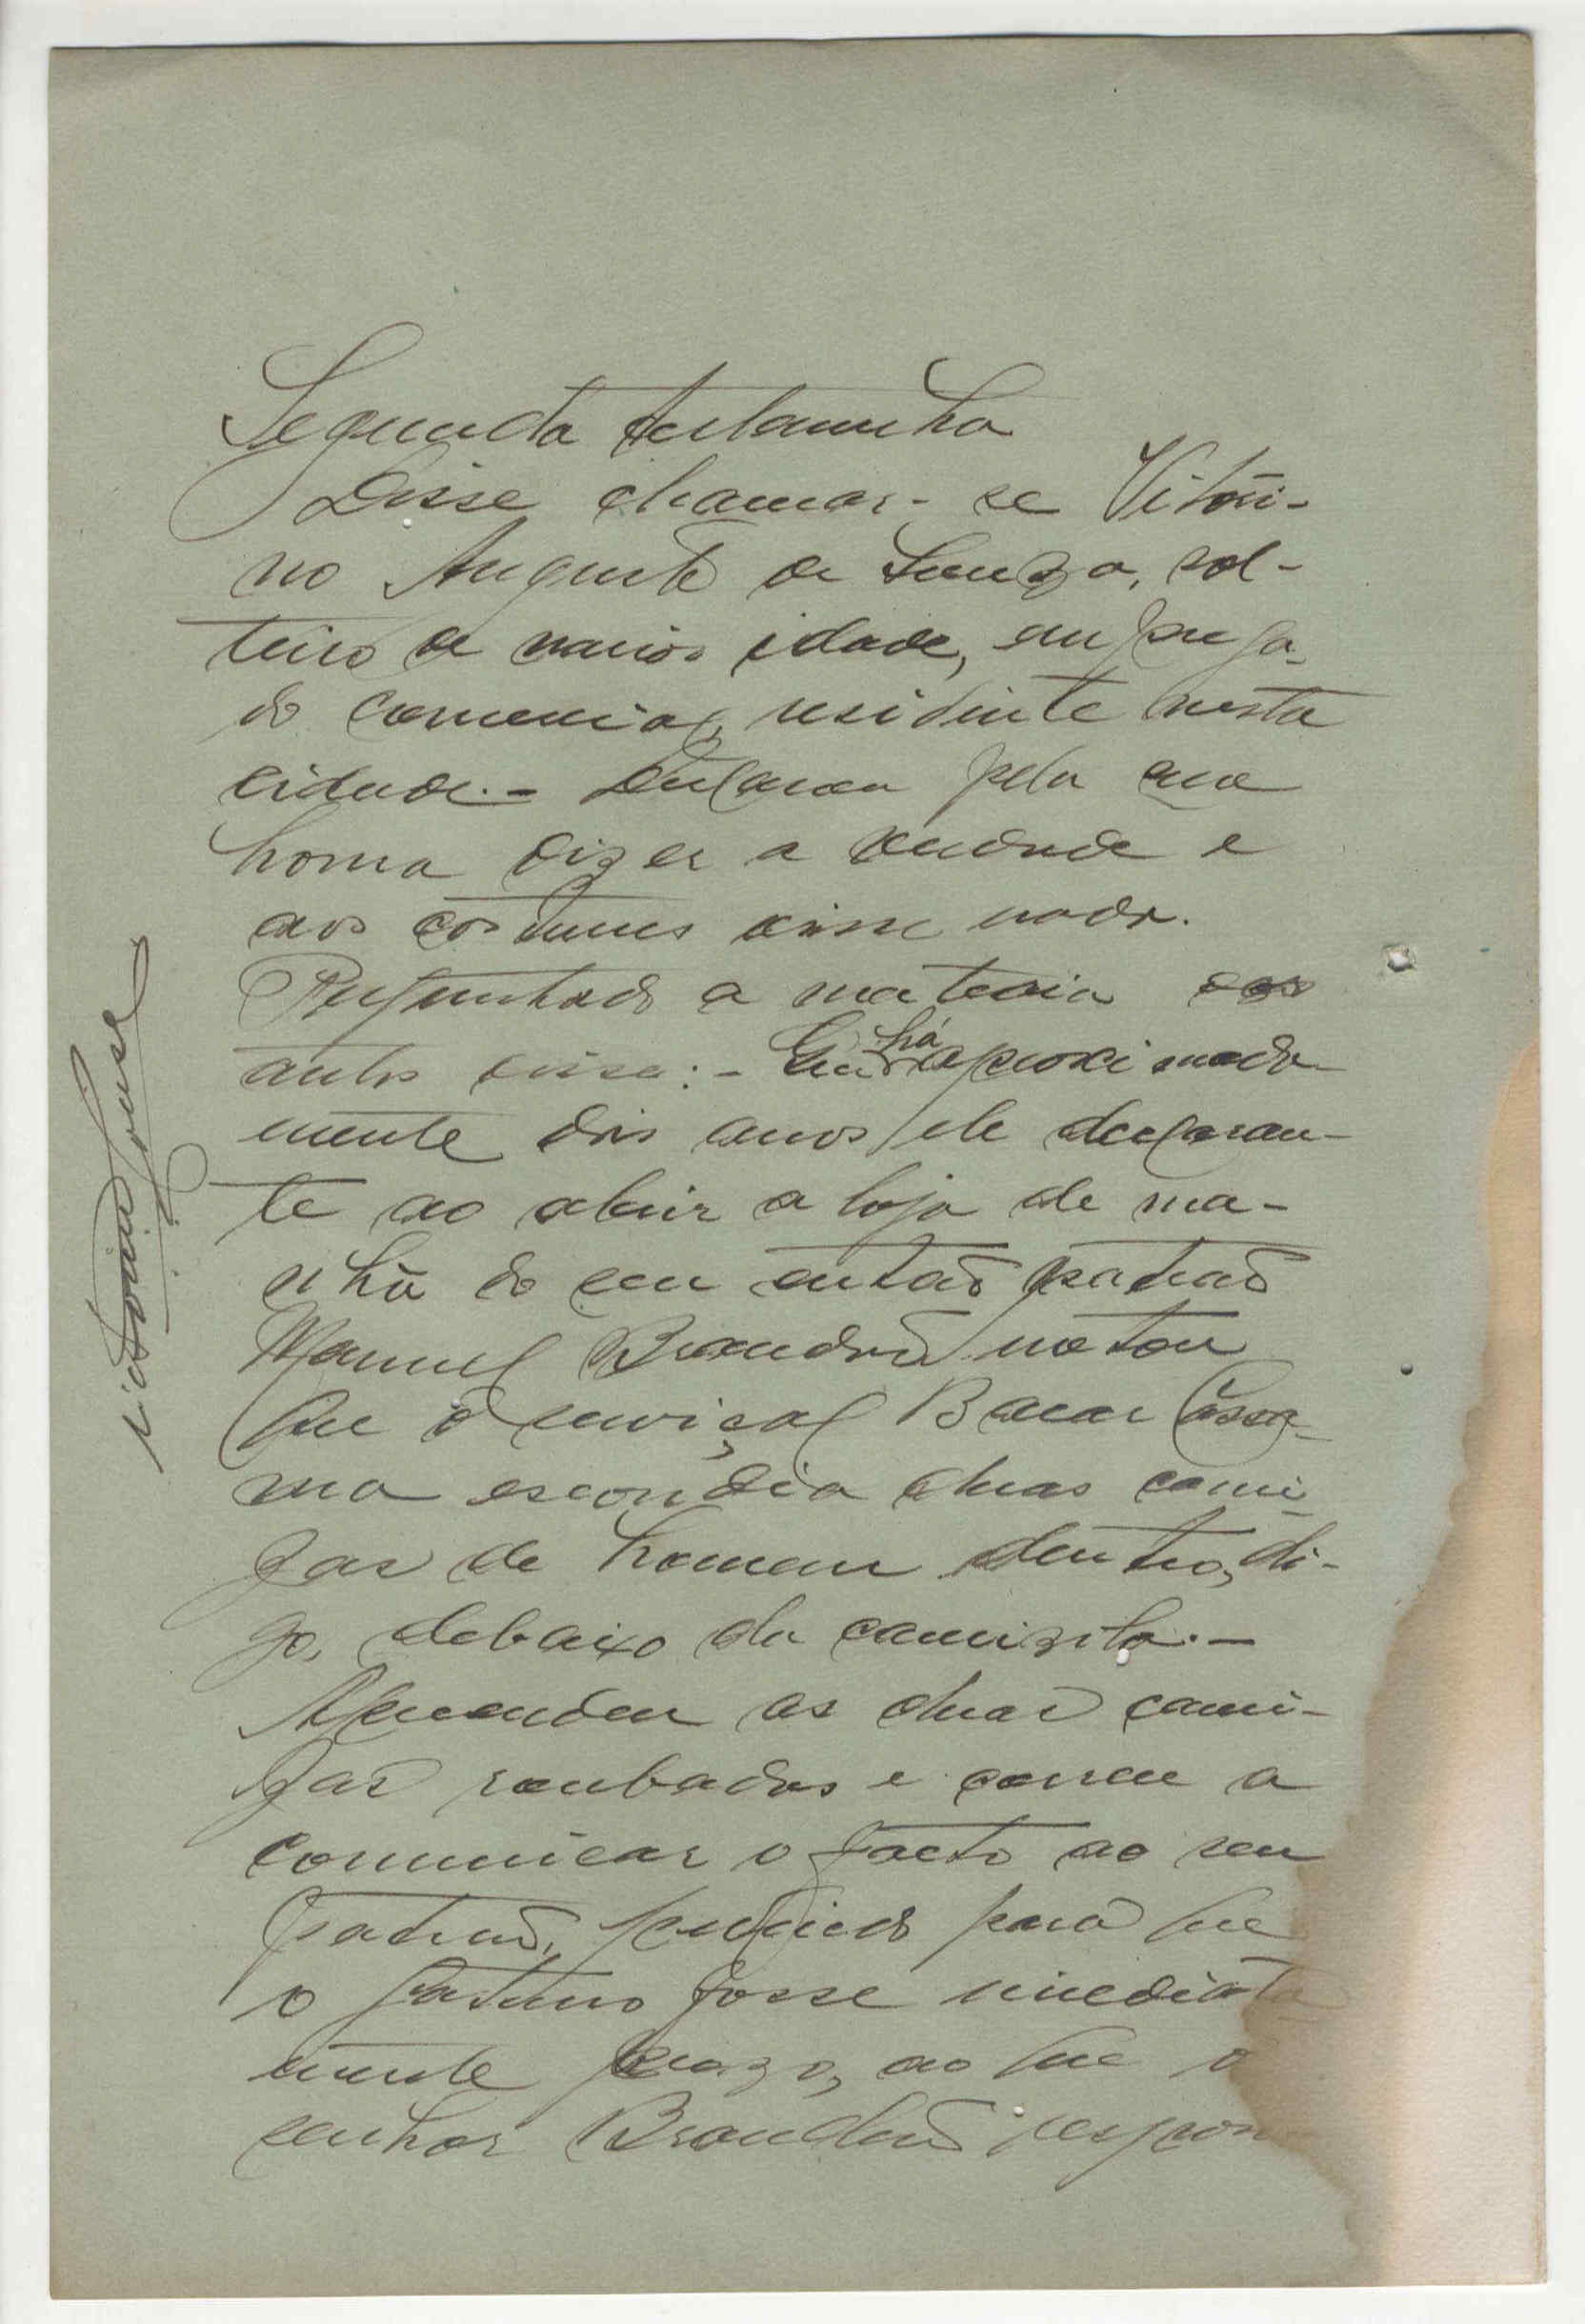 Segunda testemunha
Disse chamar-se Vitori-
no Augusto de Souza, sol-
teiro de maior idade, emprega-
do comercial, residente nesta
cidade.- Declarou pela sua
honra dizer a verdade e
aos costumes disse nada.
Perguntado a materia dos
autos disse:- Que há aproximada-
mente dois anos ele declaran-
te ao abrir a loja de ma-
nhã do seu então patrão
Manuel Brandão notou
que o serviçal Bacar Cassa-
ma escondia duas cami-
zas de homem dentro, di-
go, debaixo da camizita.-
Aprendeu as duas cami-
zas roubadas e correu a
comunicar o facto ao seu
patrão, pedindo para que
o gatuno fosse imediata
mente prezo, ao que o
senhor Brandão respon
Vitorino Souza